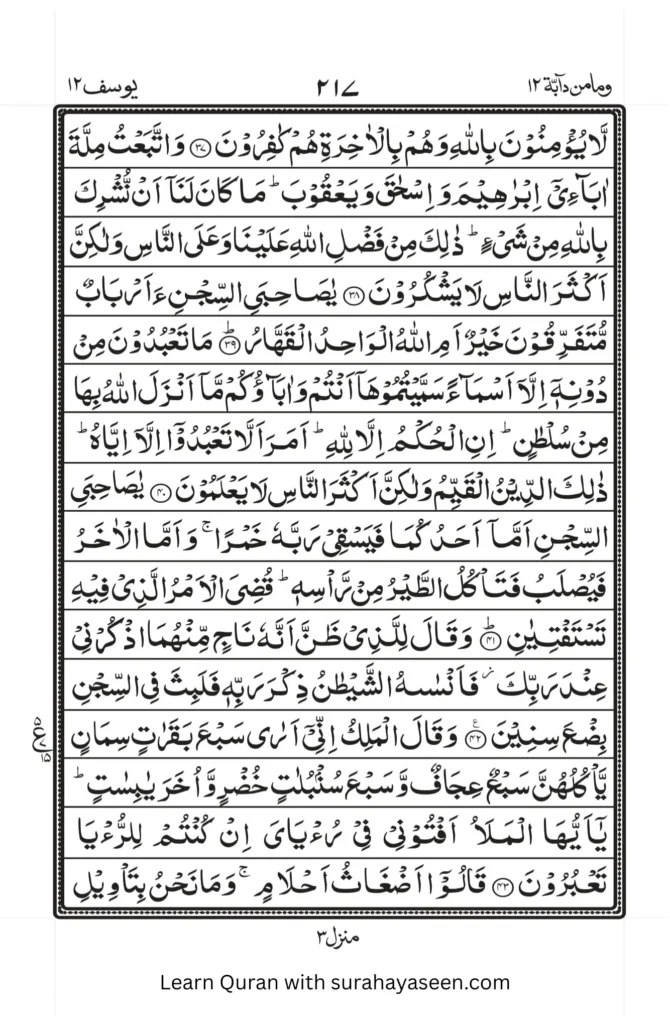 وما من دآبّة ١٢ ٢١٧ يوسف ١٢
لَّا يُؤْمِنُوْنَ بِاللّٰهِ وَهُمْ بِالْاٰخِرَةِ هُمْ كٰفِرُوْنَ ﴿۳۷﴾ وَاتَّبَعْتُ مِلَّةَ
اٰبَآءِیْۤ اِبْرٰهِيْمَ وَاِسْحٰقَ وَيَعْقُوْبَ ؕ مَا كَانَ لَنَاۤ اَنْ نُّشْرِكَ
بِاللّٰهِ مِنْ شَیْءٍ ؕ ذٰلِكَ مِنْ فَضْلِ اللّٰهِ عَلَيْنَا وَعَلَى النَّاسِ وَلٰكِنَّ
اَكْثَرَ النَّاسِ لَا يَشْكُرُوْنَ ﴿۳۸﴾ يٰصَاحِبَیِ السِّجْنِ ءَاَرْبَابٌ
مُّتَفَرِّقُوْنَ خَيْرٌ اَمِ اللّٰهُ الْوَاحِدُ الْقَهَّارُ ﴿ؕ۳۹﴾ مَا تَعْبُدُوْنَ مِنْ
دُوْنِهٖۤ اِلَّاۤ اَسْمَآءً سَمَّيْتُمُوْهَاۤ اَنْتُمْ وَاٰبَآؤُكُمْ مَّاۤ اَنْزَلَ اللّٰهُ بِهَا
مِنْ سُلْطٰنٍ ؕ اِنِ الْحُكْمُ اِلَّا لِلّٰهِ ؕ اَمَرَ اَلَّا تَعْبُدُوْۤا اِلَّاۤ اِيَّاهُ ؕ
ذٰلِكَ الدِّيْنُ الْقَيِّمُ وَلٰكِنَّ اَكْثَرَ النَّاسِ لَا يَعْلَمُوْنَ ﴿۴۰﴾ يٰصَاحِبَیِ
السِّجْنِ اَمَّاۤ اَحَدُكُمَا فَيَسْقِیْ رَبَّهٗ خَمْرًا ۚ وَاَمَّا الْاٰخَرُ
فَيُصْلَبُ فَتَاْكُلُ الطَّيْرُ مِنْ رَّاْسِهٖ ؕ قُضِیَ الْاَمْرُ الَّذِیْ فِيْهِ
تَسْتَفْتِيٰنِ ﴿ؕ۴۱﴾ وَقَالَ لِلَّذِیْ ظَنَّ اَنَّهٗ نَاجٍ مِّنْهُمَا اذْكُرْنِیْ
عِنْدَ رَبِّكَ ؗ فَاَنْسٰىهُ الشَّيْطٰنُ ذِكْرَ رَبِّهٖ فَلَبِثَ فِی السِّجْنِ
بِضْعَ سِنِيْنَ ﴿۴۲﴾ وَقَالَ الْمَلِكُ اِنِّیْۤ اَرٰى سَبْعَ بَقَرٰتٍ سِمَانٍ
يَّاْكُلُهُنَّ سَبْعٌ عِجَافٌ وَّسَبْعَ سُنْۢبُلٰتٍ خُضْرٍ وَّاُخَرَ يٰبِسٰتٍ ؕ
يٰۤاَيُّهَا الْمَلَاُ اَفْتُوْنِیْ فِیْ رُءْيَایَ اِنْ كُنْتُمْ لِلرُّءْيَا
تَعْبُرُوْنَ ﴿۴۳﴾ قَالُوْۤا اَضْغَاثُ اَحْلَامٍ ۚ وَمَا نَحْنُ بِتَاْوِيْلِ
منزل ٣
Learn Quran with surahayaseen.com